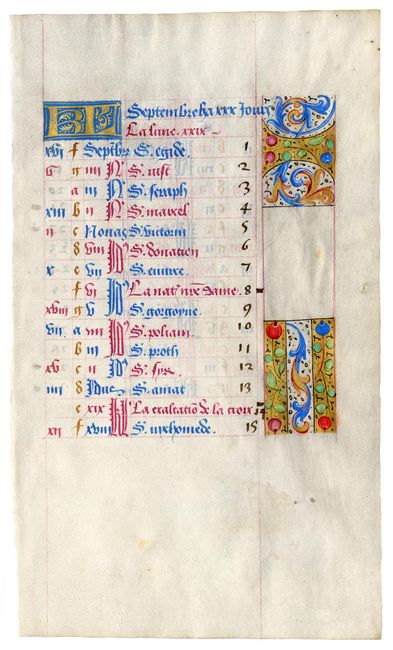 KL Septembre ha xxx Jours
La lune . xxix .
xvi f Septbr S. egide . 1
v g iiii N S. iust 2
a iii N S. seraph 3
xiii b ii N S. marcel 4
ii c Nonas S. victorin 5
d viii Id S. donatien 6
x e vii Id S. eutrxe . 7
f vi Id La nat nre dame . 8
xviii g v Id S. gorgoyne . 9
vii a iiii Id S. poliain . 10
b iii Id S. proth 11
xv c ii Id S. syre . 12
iiii d Idus S. amat 13
e xix kl La exaltatiō de la croix . 14
xii f xviii kl S. nichomede . 15